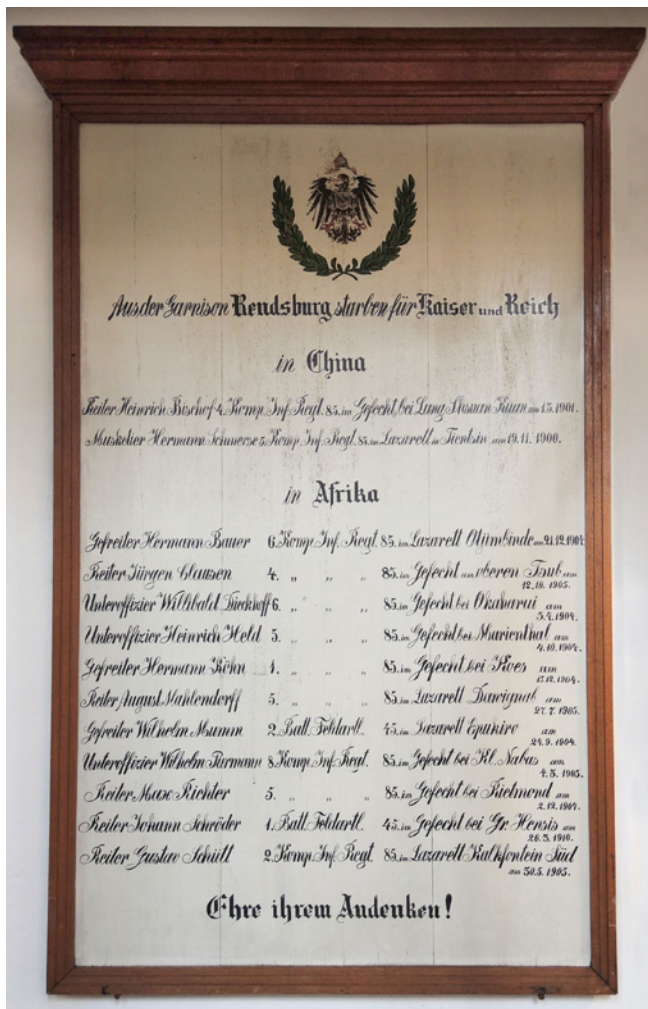 Aus der Garnison Rendsburg starben für Kaiser und Reich
in China
Reiter Heinrich Bischof 4. Komp. Inf. Regt. 85. im Gefecht bei Kuan am 1901.
Musketier Hermann 5. Komp. Inf. Regt. 85. im Lazarett in Tientsin am 19.11.1900.
in Afrika
Gefreiter Hermann Bauer 6. Komp. Inf. Regt. 85. im Lazarett Otjimbinde am 21.12.1904.
Reiter Jürgen Clausen 4. „ „ „ 85. im Gefecht am oberen Tsub am
12.10.1905.
Unteroffizier Willibald Dieckhoff 6. „ „ „ 85. im Gefecht bei Okaharui am
3.4.1904.
Unteroffizier Heinrich Held 5. „ „ „ 85. im Gefecht bei Marienthal am
4.10.1904.
Gefreiter Hermann Köhn 1. „ „ „ 85. im Gefecht bei Koes am
12.1904.
Reiter August Mahlendorff 5. „ „ „ 85. im Lazarett Dawignab am
27.7.1905.
Gefreiter Wilhelm Mumm 2. Batt. Feldartl. 45. im Lazarett Epukiro am
24.9.1904.
Unteroffizier Wilhelm Pürmann 8. Komp. Inf. Regt. 85. im Gefecht bei Kl. Nabas am
4.5.1905.
Reiter Max Richter 5. „ „ „ 85. im Gefecht bei Rietmond am
2.12.1904.
Reiter Johann Schröder 1. Batt. Feldartl. 45. im Gefecht bei Gr. Hensis am
26.3.1910.
Reiter Gustav Schütt 2. Komp. Inf. Regt. 85. im Lazarett Kalkfontein Süd
am 30.5.1905.
Ehre ihrem Andenken!